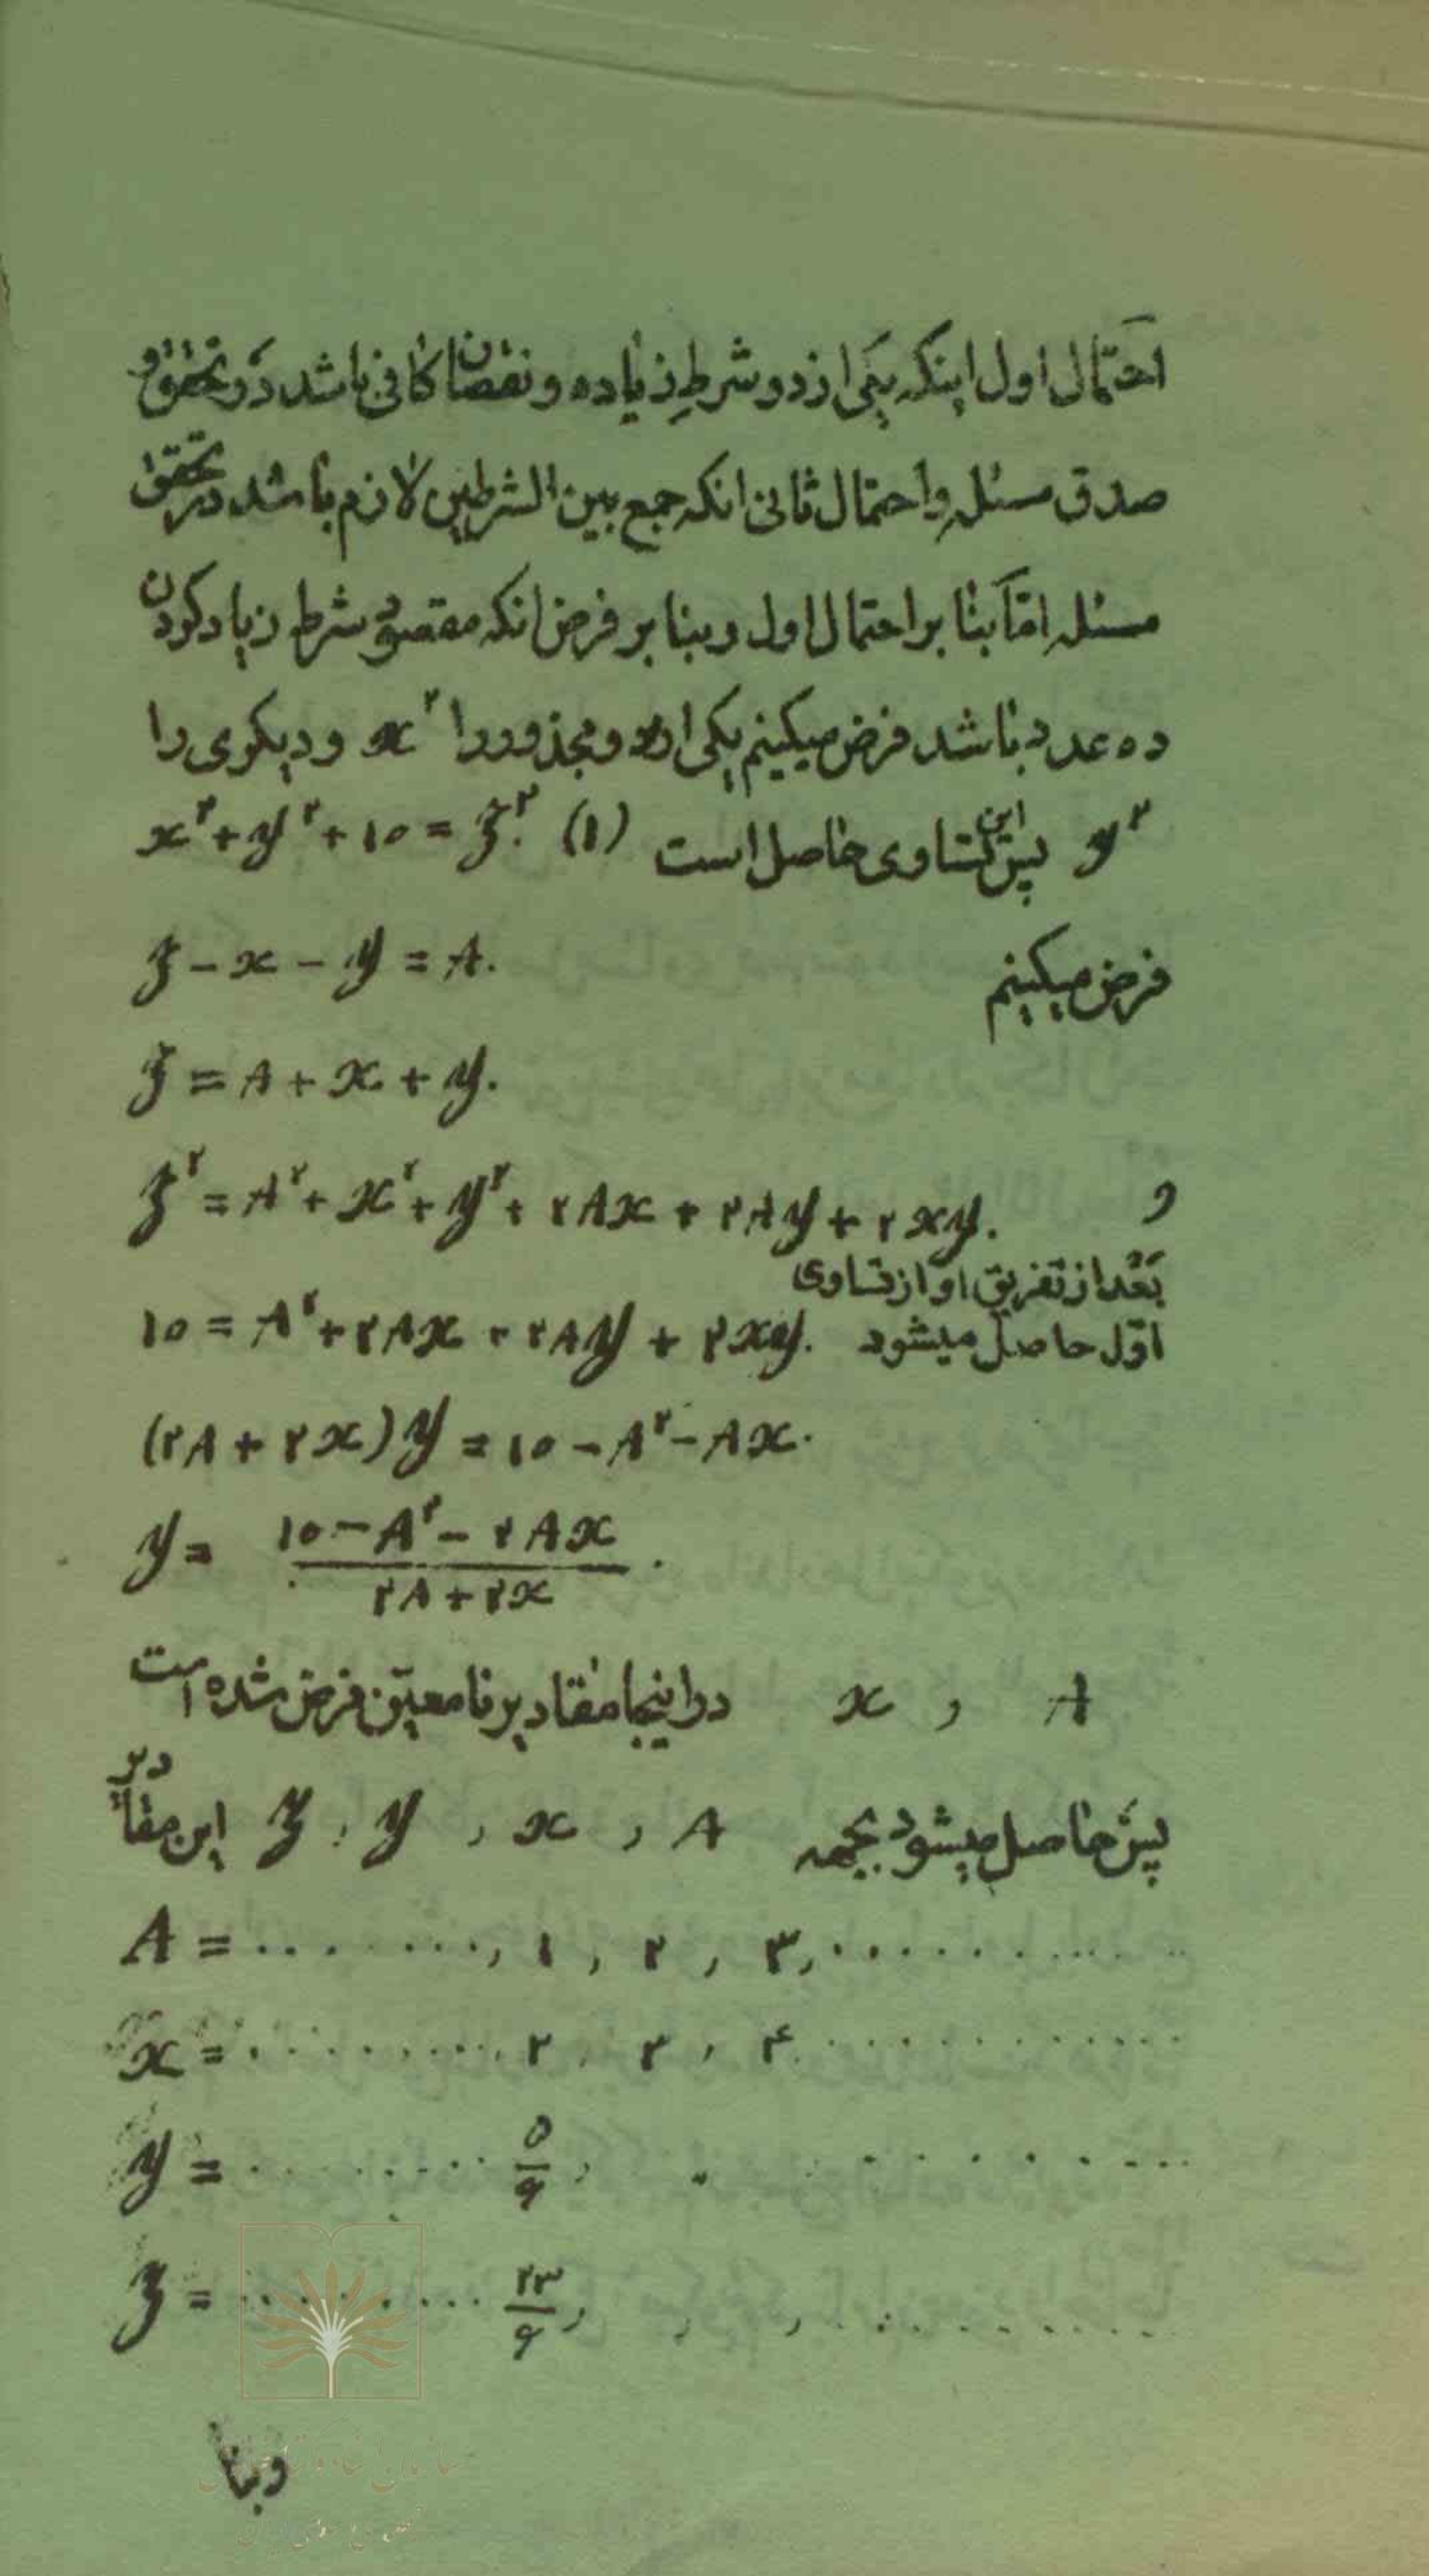 احتمال اول اینکه یکی از دو شرط زیاده و نقصان کافی باشد در تحقق و
صدق مسئله و احتمال ثانی انکه جمع بین الشرطین لازم باشد در تحقق
مسئله امّا بنا بر احتمال اول و بنا بر فرض انکه مقصود شرط زیاد کردن
ده عدد باشد فرض میکینم یکی از دو مجذور را x² و دیکری را
y² پس این تساوی حاصل است (۱) x²+y²+۱۰=z².
فرض میکینم z-x-y=A.
z=A+x+y.
و z²=A²+x²+y²+۲Ax+۲Ay+۲xy.
بعد از تفریق او از تساوی
اوّل حاصل میشود ۱۰=A²+۲Ax+۲Ay+۲xy.
(۲A+۲x)y=۱۰-A²-Ax.
y=(۱۰-A²-۲Ax)/(۲A+۲x).
A , x در اینجا مقادیر نا معیّن فرض شده است
پس حاصل میشود بجهه A , x , y , z این مقادیر
A=........,۱,۲,۳,...........
x=.........۲,۲,۴............
y=........۵/۶, ...........
z=.........۲۳/۶, , , ...........
و بنا